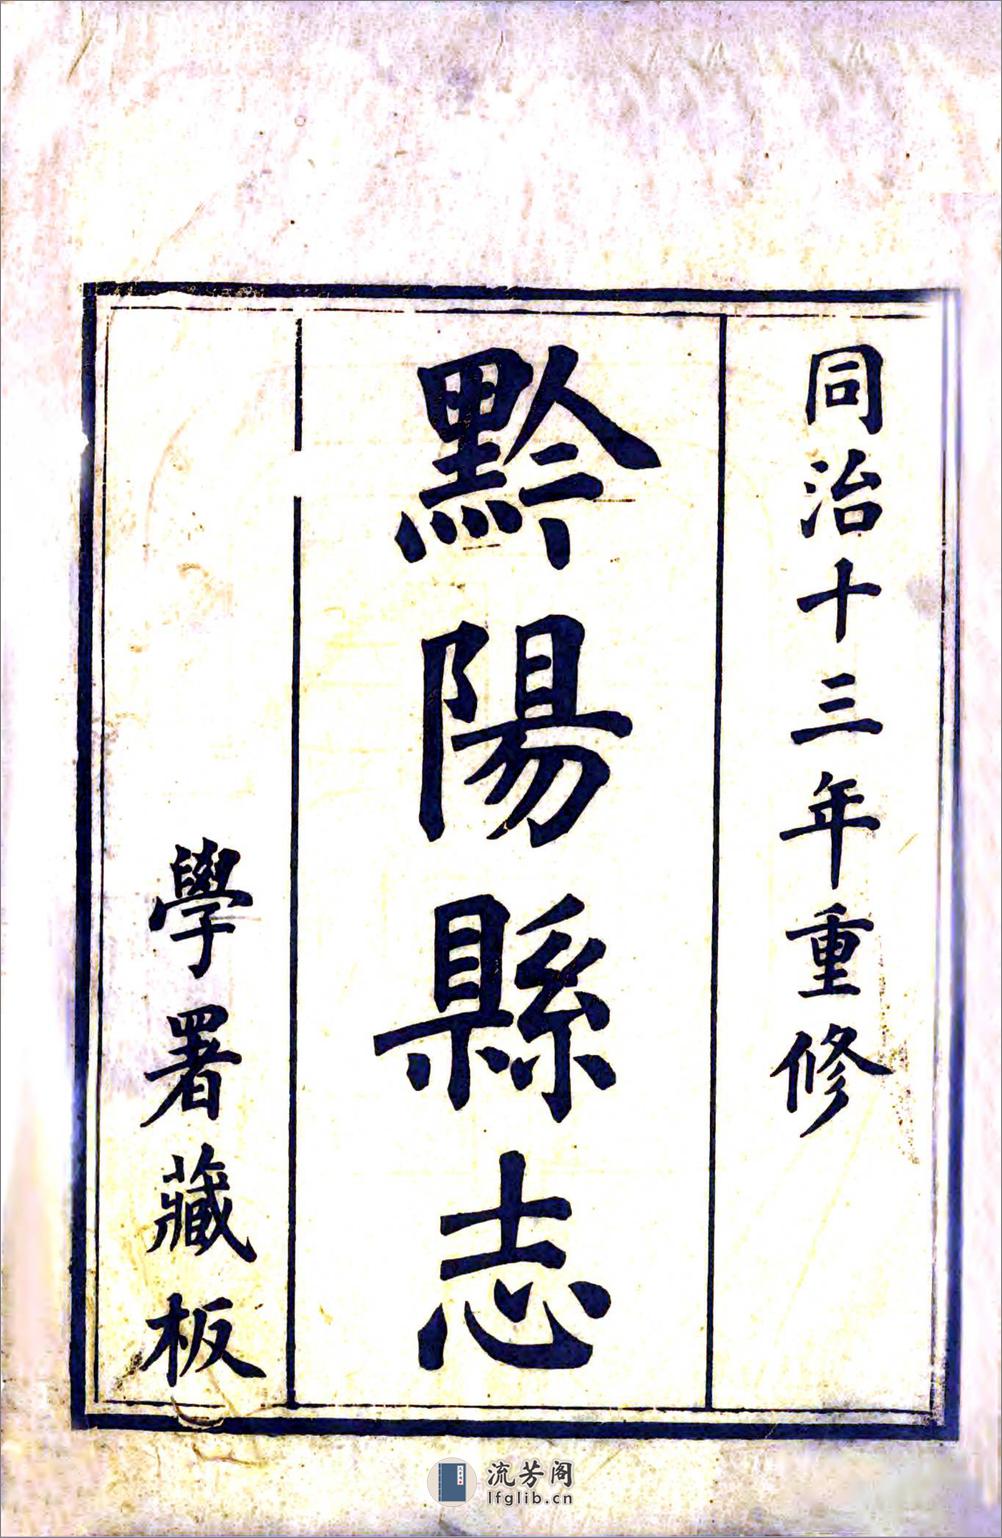 同治十三年重修
黔陽縣志
學署藏板
流芳阁
lfglib.cn